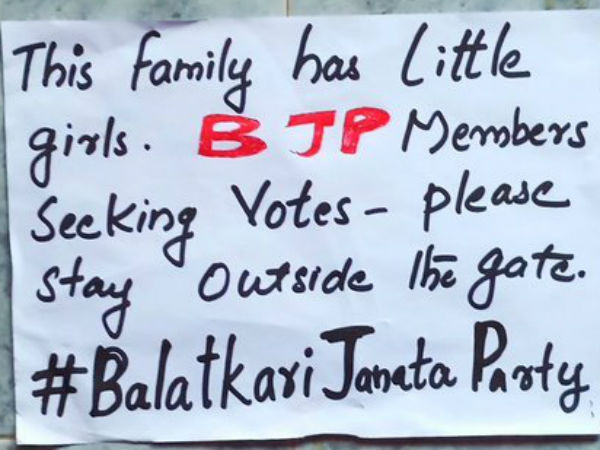 This family has little
girls. BJP Members
Seeking Votes- please
stay outside the gate.
#Balatkari Janata Party